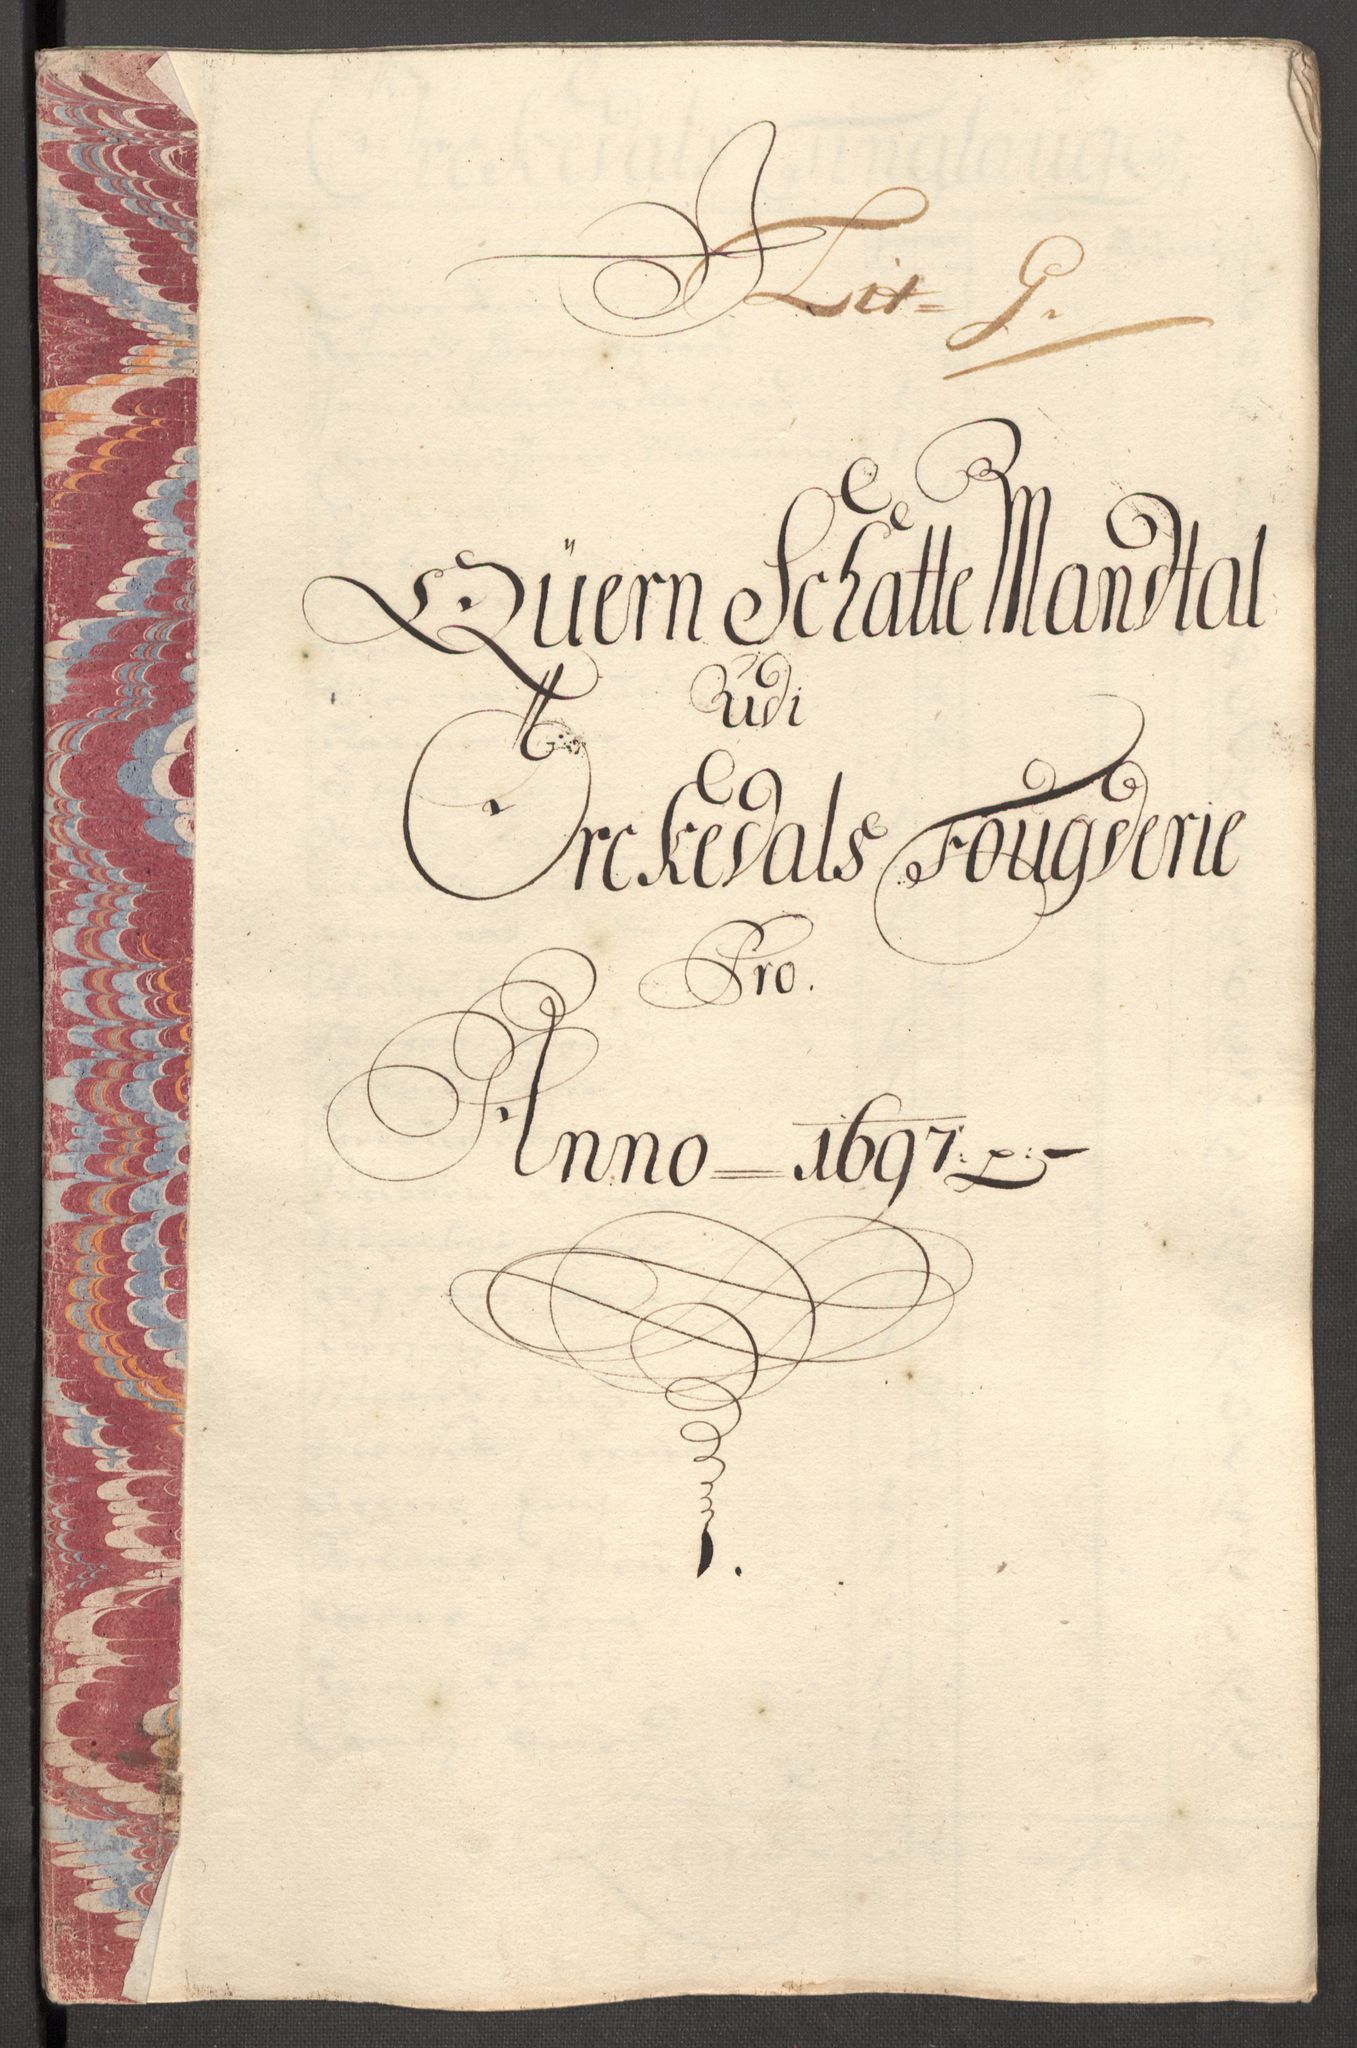 Lit= G.
Qüern Schatte Mandtal
Udi
Orckedals Fougderie
Pro.
Anno = 1697:
1.